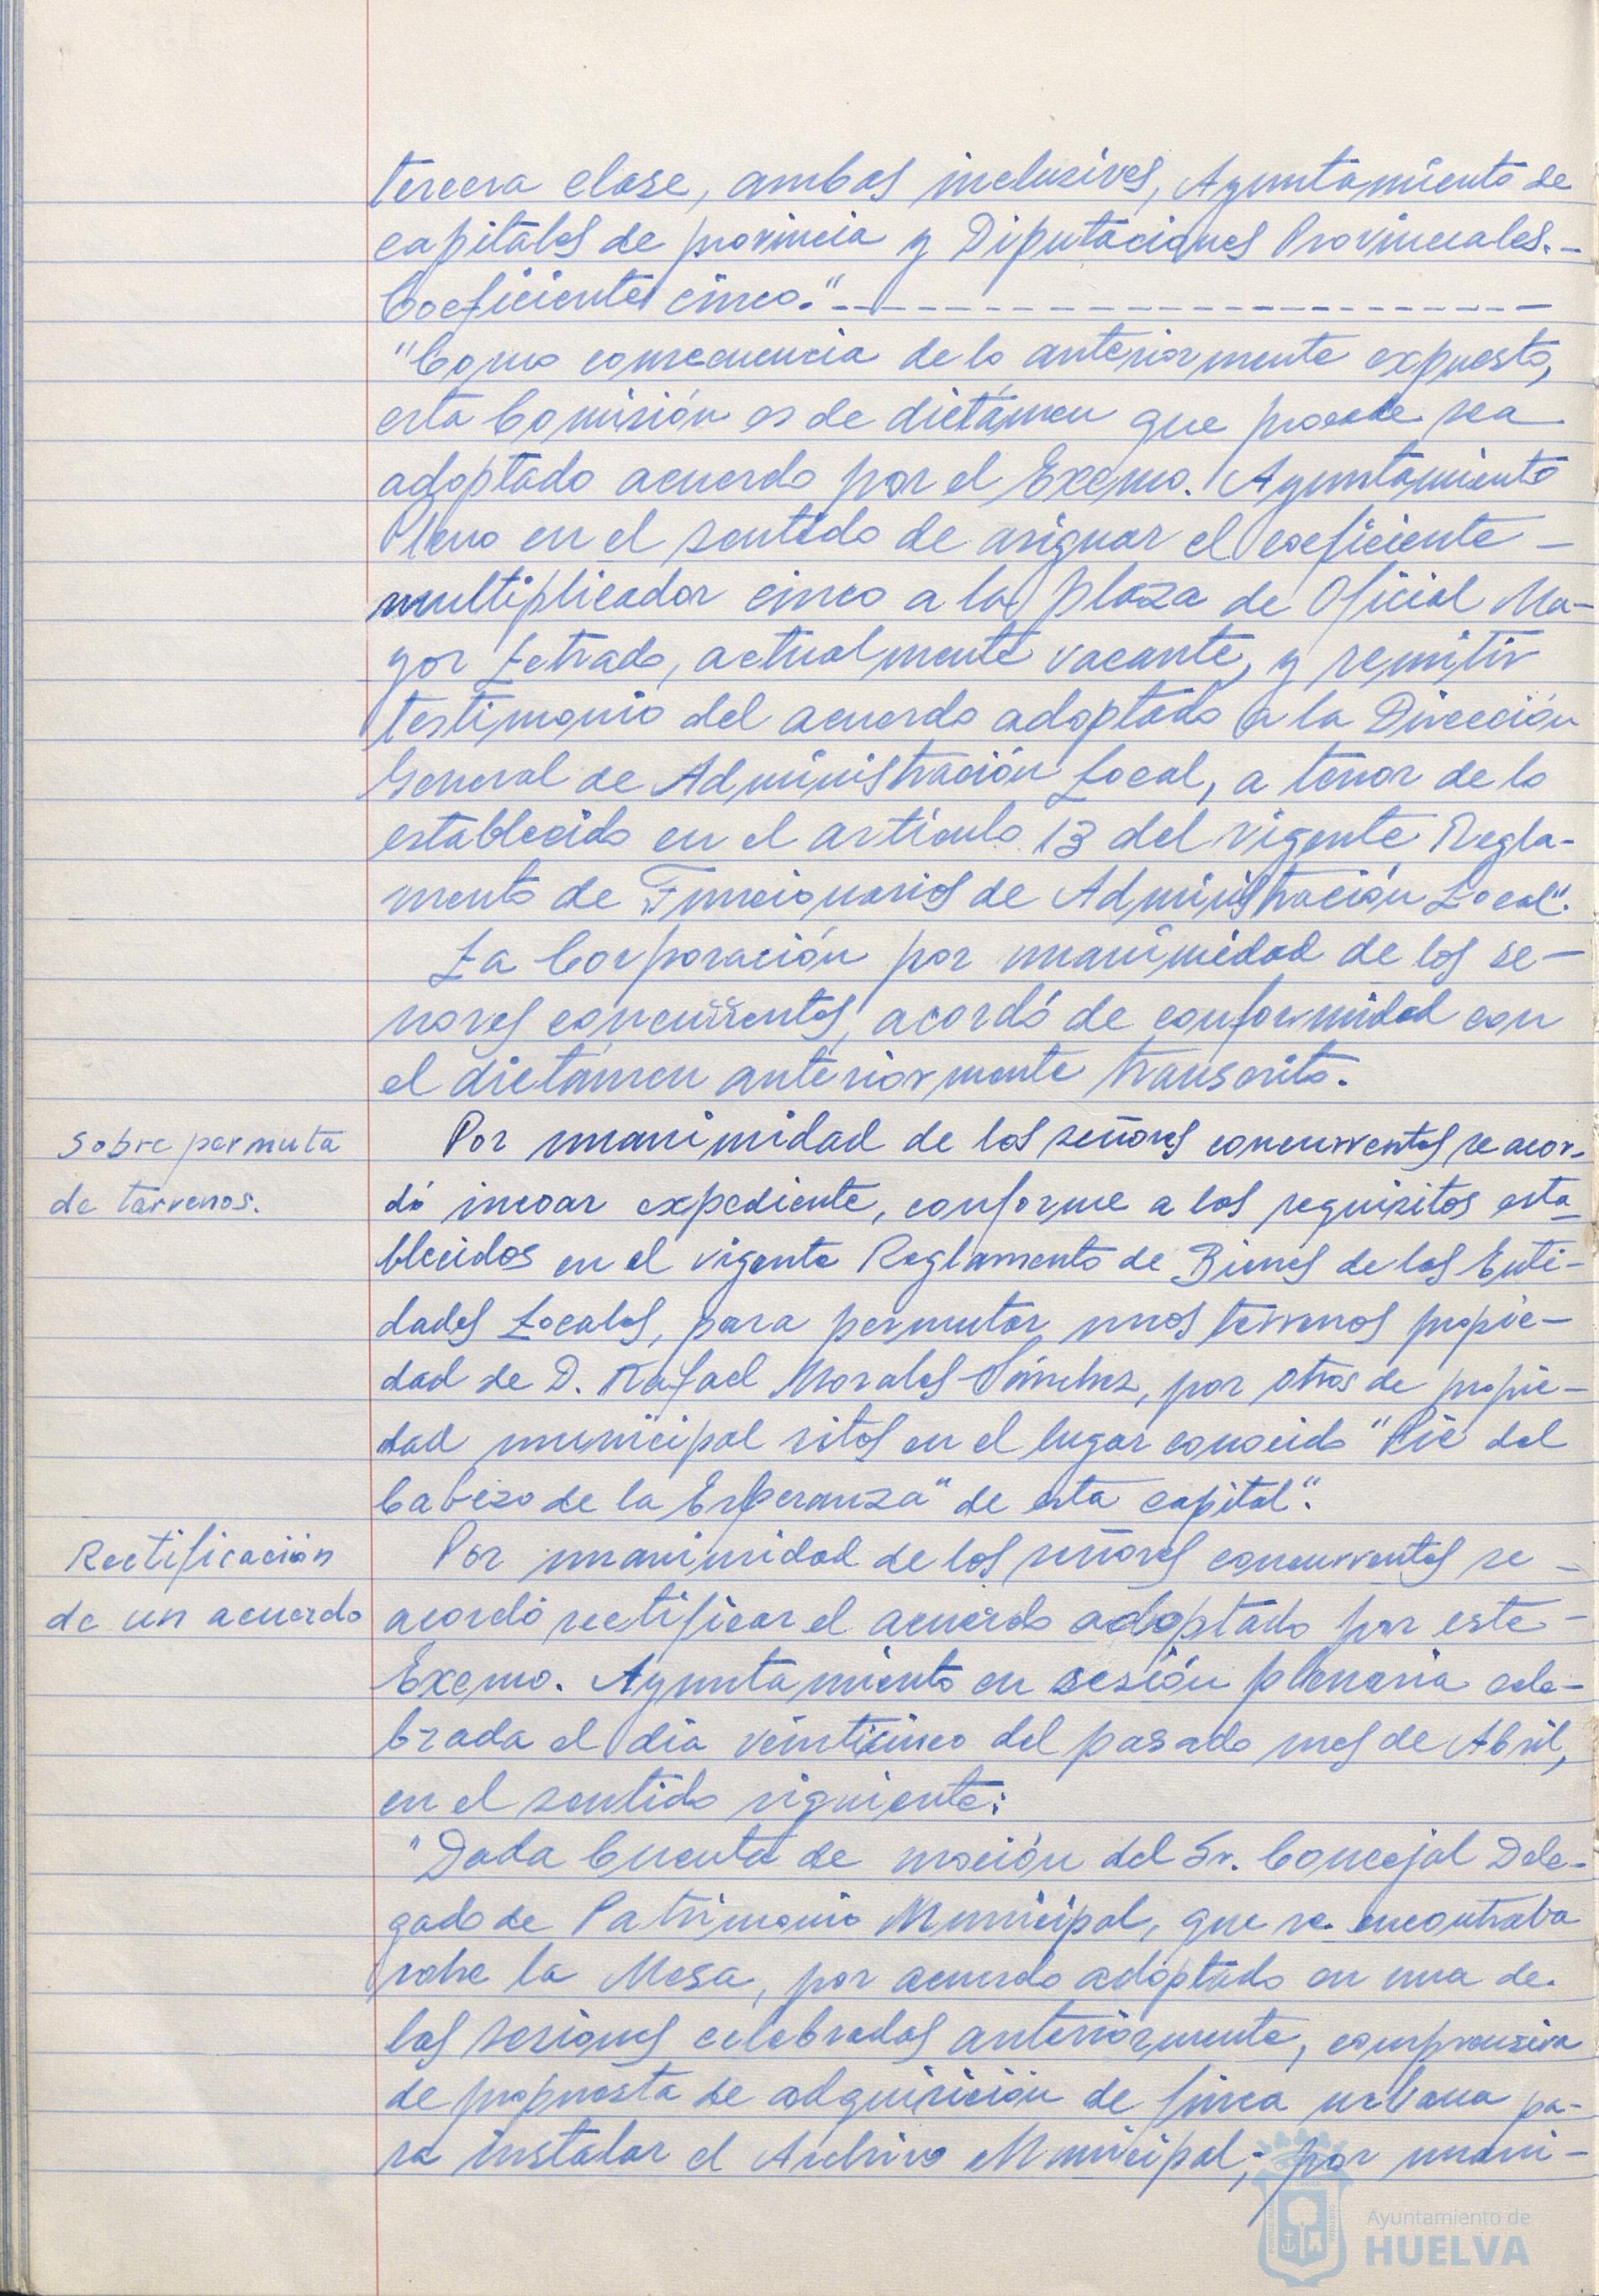 tercera clase, ambas inclusives, Ayuntamiento de
capitales de provincia y Diputaciones Provinciales.-
Coeficiente cinco."-----------------------
"Como consecuencia de lo anteriormente expuesto,
esta Comisión es de dictámen que procede sea
adoptado acuerdo por el Excmo. Ayuntamiento
Pleno en el sentido de asignar el coeficiente -
multiplicador cinco a la plaza de Oficial Ma-
yor Letrado, actualmente vacante, y remitir
testimonio del acuerdo adoptado a la Dirección
General de Administración Local, a tenor de lo
establecido en el artículo 13 del vigente Regla-
mento de Funcionarios de Administración Local".
La Corporación por unanimidad de los se-
ñores concurrentes, acordó de conformidad con
el dictámen anteriormente transcrito.
Sobre permuta
de terrenos.
Por unanimidad de los señores concurrentes se acor-
dó incoar expediente, conforme a los requisitos esta-
blecidos en el vigente Reglamento de Bienes de las Enti-
dades Locales, para permutar unos terrenos propie-
dad de D. Rafael Morales Sánchez, por otros de propie-
dad municipal sitos en el lugar conocido "Pie del
Cabezo de la Esperanza" de esta capital".
Rectificación
de un acuerdo
Por unanimidad de los señores concurrentes se -
acordó rectificar el acuerdo adoptado por este -
Excmo. Ayuntamiento en sesión plenaria cele-
brada el día veinticinco del pasado mes de Abril,
en el sentido siguiente:
"Dada Cuenta de moción del Sr. Concejal Dele-
gado de Patrimonio Municipal, que se encontraba
sobre la Mesa, por acuerdo adoptado en una de
las sesiones celebradas anteriormente, comprensiva
de propuesta de adquisición de finca urbana pa-
ra instalar el Archivo Municipal; por unani-
Ayuntamiento de
HUELVA